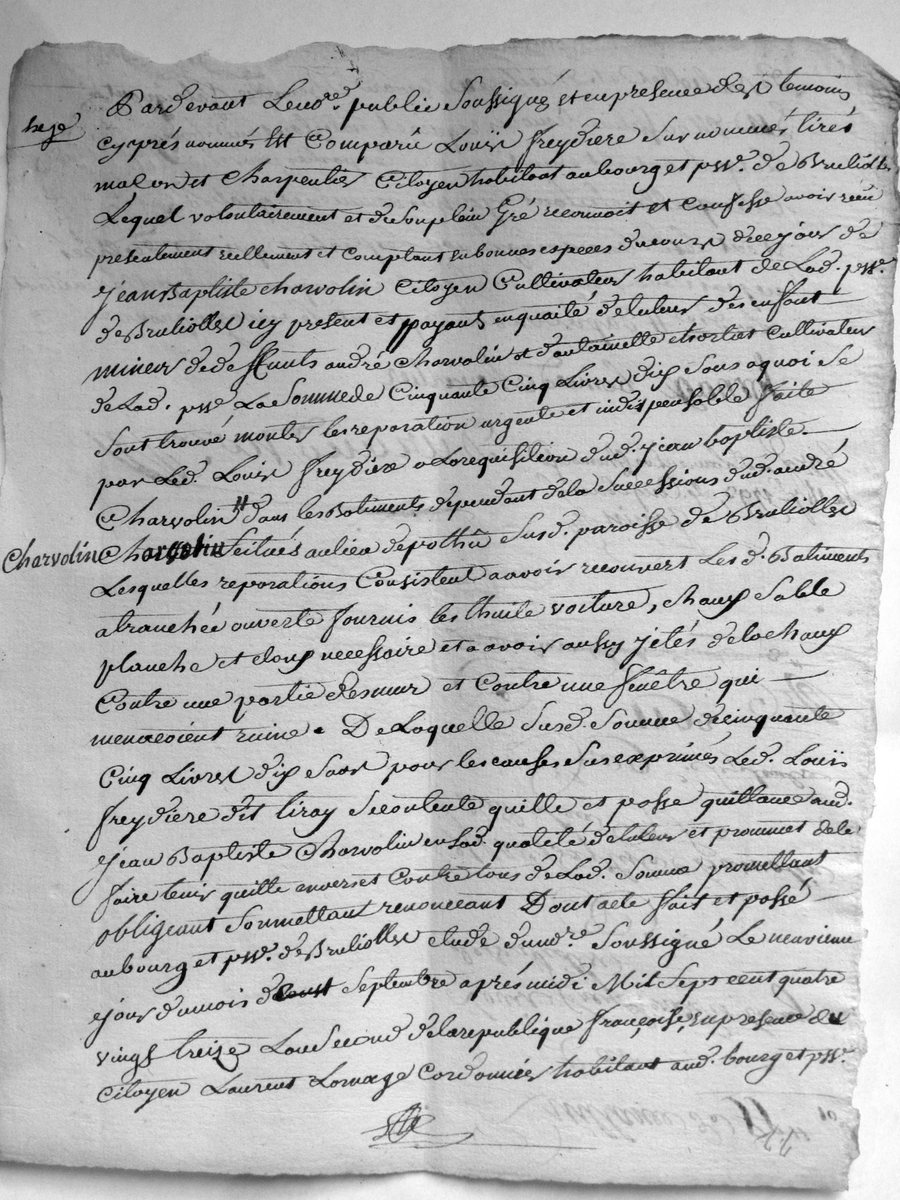 Pardevant Le no.re public Soussigné et en presence des temoins
cy après nommés Est Comparu Louïs freydiere Surnommés tirés
maçon et Charpentier Citoyen habitant au bourg et p.sse de Brulioles
Lequel volontairement et de Son plein Gré reconnoit et Confesse avoir reçu
presentement reellement et Comptant en bonnes especes du cours de ce jour de
jean Baptiste charvolin Citoyen Cultivateur habitant de Lad. p.sse
de Bruliolles icy present et payant en qualité de tuteur des enfant
mineur de deffunts andré Charvolin et d'antoinette Cultivateur
de Lad. p.sse La Somme de Cinquante Cinq Livres dix Sous a quoi Se
Sont trouvé monter les reparation urgente et indispensable faite
par Led. Louis freydiere a La requisition dud. jean baptiste
Charvolin dans les Batiments dependant de la Successions dud. andré
Charvolin Charvolin Scitués au lieu de pothu Susd. paroisse de Bruliolles
Lesquelles reparations Consistent a avoir recouvert Les d. Batiments
a tranchée ouverte fournis les thuile voiture, chaux Sable
planche et cloux necessaire et a avoir aussy jetés de la chaux
Contre une partie des mur et Contre une fenêtre qui
menaçoient ruine. De Laquelle Susd. Somme de cinquante
Cinq Livres dix Sous pour les causes Sus exprimés Led. Louïs
freydiere dit tiray Se contente quitte et passe quittance aud.
jean Baptiste Charvolin en Lad. qualité de tuteur et prommet de le
faire tenir quitte envers et Contre tous de Lad. Somme promettant
obligeant Soumettant renonceant Dont acte fait et passé
au bourg et p.sse de Bruliolles etude du no.re Soussigné Le neuvieme
jour du mois de Septembre après midi Mil Sept cent quatre
vingt treize L'an Second de la republique françoise, en presence du
Citoyen Laurent Lornage Cordonnier habitant aud. bourg et p.sse